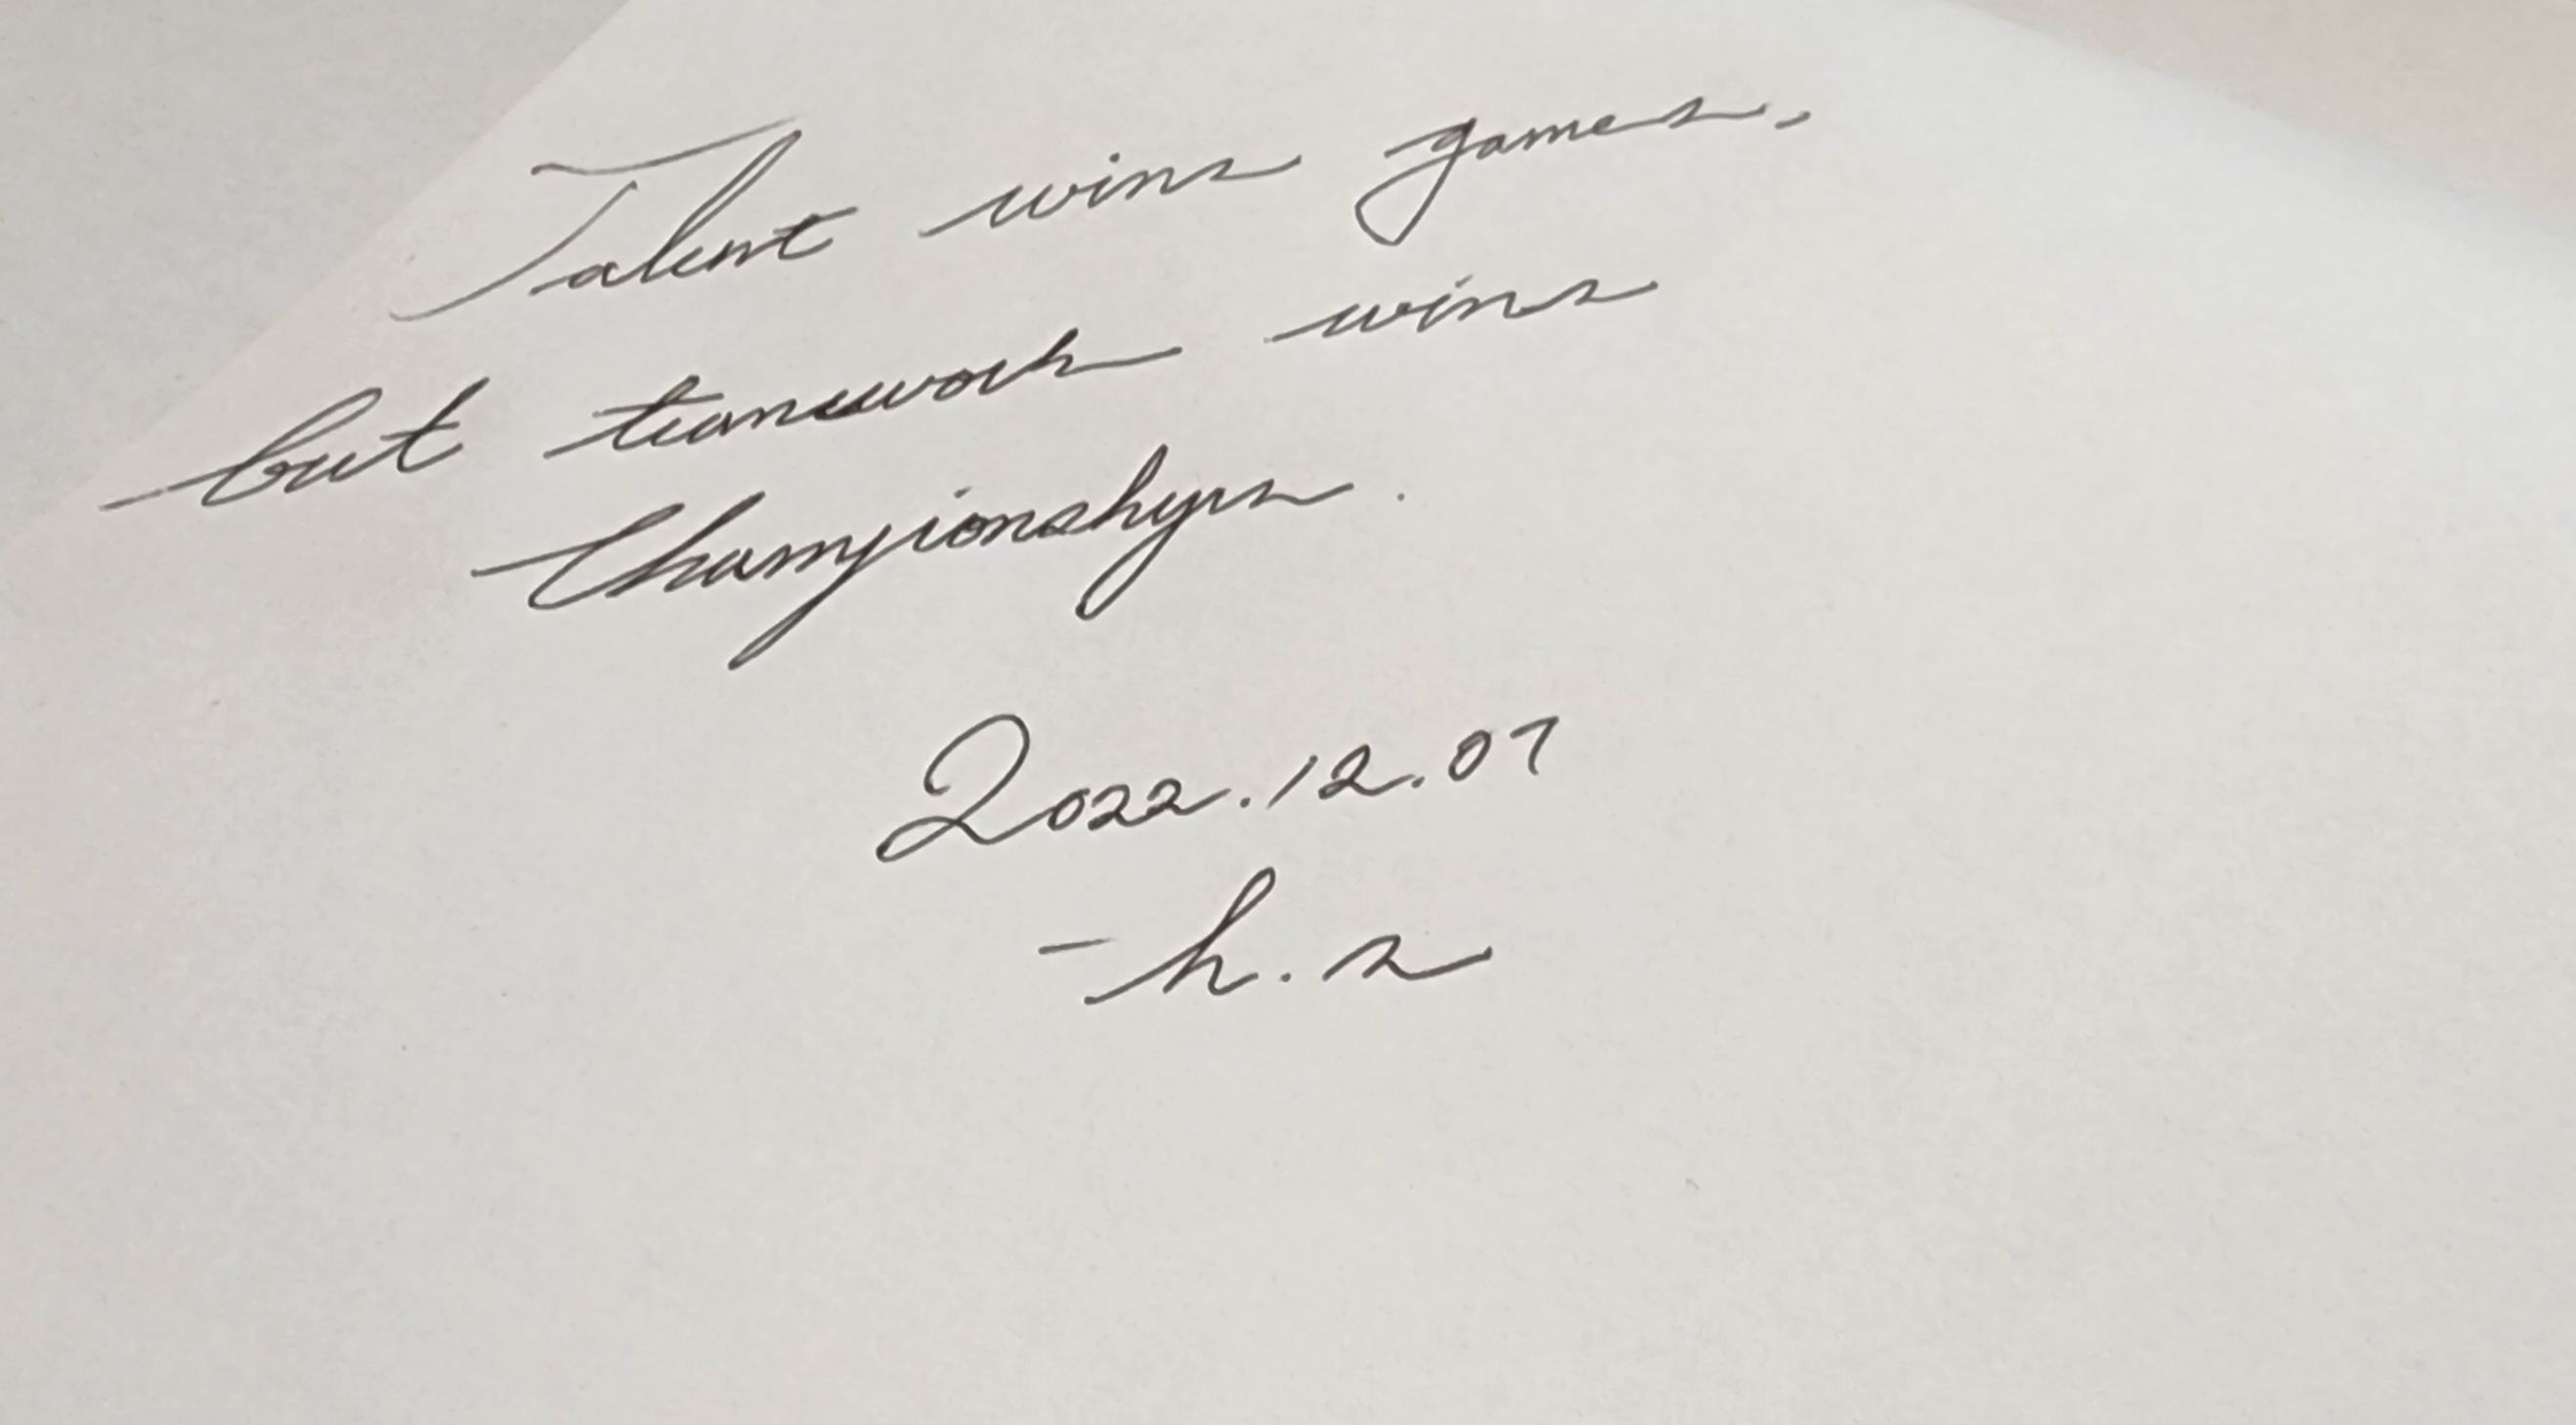 Talent wins games,
but teamwork wins
championships.
2022.12.07
- h. s